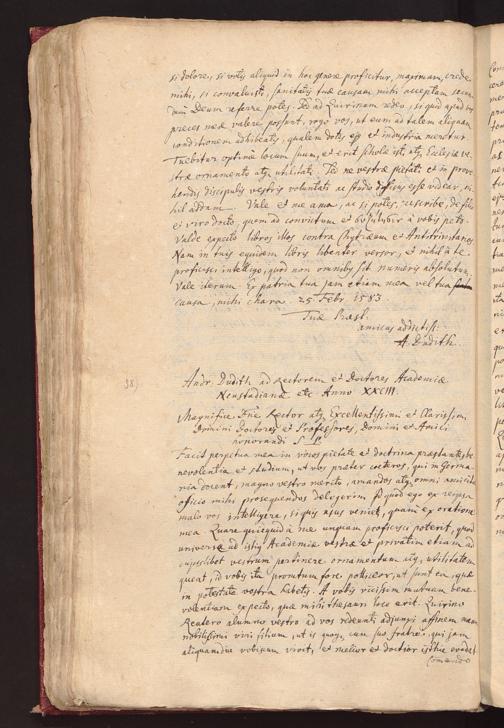 si dolore, si votis aliquid in hoc genere proficitur, maximam, crede
mihi, si convaluisti, sanitatis tuæ causam mihi acceptam secun-
dum Deum referre potes. Sed ad Quirinum redeo, si quid apud vos
preces meæ valere possunt, rogo vos, ut eum ad talem aliquam
conditionem adhibeatis, qualem dotes ejus et industria meretur.
Tuebitur optime locum suum, et erit Scholæ ist. atq Ecclesiæ ve-
stræ ornamento atq utilitati. Sed ne vestræ pietati et in prove-
hendis discipulis vestris voluntati ac studio diffisus esse videar, ni-
hil addam. Vale et me ama, ac si potes, rescribe, de filii
ei viro docto, quem ad convictum et à vobis peto.
Valde expecto libros illos contra Chytræum et Antitrinitarios
Nam in tuis equidem libris libenter versor, et nihil à te
proficisci intelligo, quod non omnibus sit numeris absolutum.
Vale iterum. Ex patria tua jam etiam mea vel tua
causa, mihi chara. 25 Febr. 1583.
Tuæ Præst.
amicus addictiss.
A. Dudith.
38)
Andr. Dudith ad Rectorem et Doctores Academiæ
Neustadianæ etc Anno XXCIII.
Magnifice Dne Rector atq Excellentissimi et Clarissimi
Domini Doctores et Professores, Domini et Amici
honorandi S. P.
Facit perpetua mea in viros pietate et doctrina præstantes be-
nevolentia et studium, ut vos præter cæteros, qui in Germa-
nia docent, magno vestro merito, amandos atq omni amicitiæ
officio mihi prosequendos delegerim Id quod ego ex re ipsa
malo vos intelligere, si quis usus veniet, quam ex oratione
mea Quare quicquid à me unquam proficisci poterit, quod
universæ ad istiq Academiæ vestræ et privatim etiam ad
cujuslibet vestrum pertinere ornamentum atq utilitatem
queat, id vobis ita promtum fore polliceor, ut sunt ea, quæ
in potestate vestra habetis. A vobis vicissim mutuam bene-
volentiam expecto, quæ mihi thesauri loco erit. Quirino
Reutero alumno vestro ad vos redeunti adjunxi affinem meum
nobilissimi viri filium, ut is quoq cum suo fratre, qui jam
aliquamdiu vobiscum vivit, et melior et doctior isthic evadat
Comendo